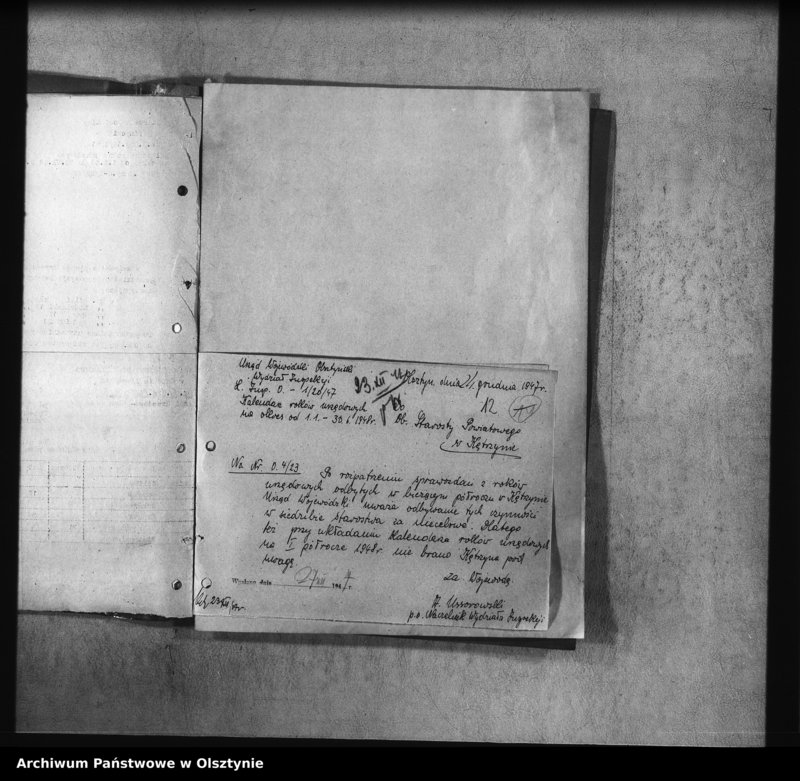 Urząd Wojewódzki Olsztyński
Wydział Inspekcji
L. Insp. O. - 1/20/47
Kalendarz roków urzędowych
na okres od 1.1. - 30.6.1948r.
23.XII
Olsztyn, dnia grudnia 1947r.
12
Do
Ob. Starosty Powiatowego
w Kętrzynie
Na Nr. O. 4/23
Po rozpatrzeniu sprawozdań z roków
urzędowych odbytych w bieżącym półroczu w Kętrzynie
Urząd Wojewódzki uważa odbywanie tych czynności
w siedzibie starostwa za niecelowe. Dlatego
też przy układaniu kalendarza roków urzędowych
na I półrocze 1948r. nie brano Kętrzyna pod
uwagę.
Za Wojewodę.
Wysłano dnia 27 XII 1947 r.
p.o. Naczelnik Wydziału Inspekcji
Archiwum Państwowe w Olsztynie